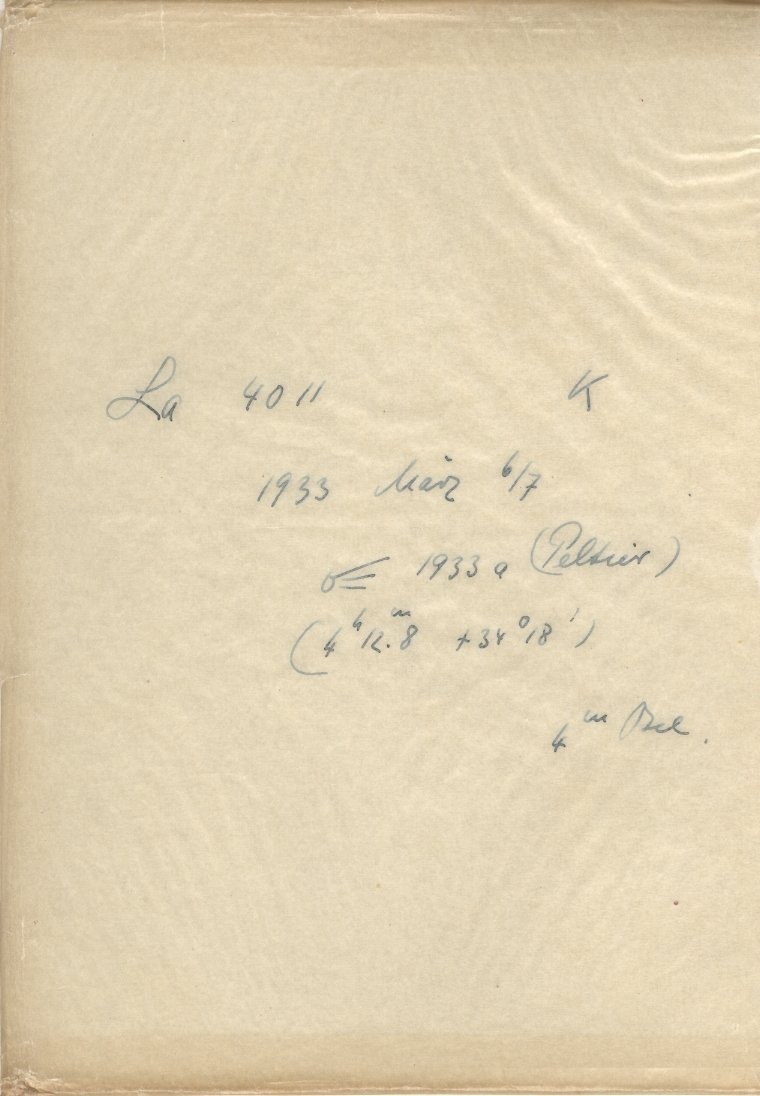 La 4011 K
1933 März 6/7
☄ 1933 a (Peltier)
(4ʰ 12.ᵐ8 +34°18')
4ᵐ Bel.